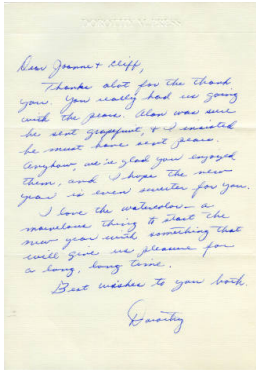 Dear Joanne & Cleff,
Thanks alot for the thank
you. You really had us going
with the pears. Alan was sure
he sent grapefruit, & I insisted
he must have sent pears.
Anyhow, we're glad you enjoyed
them, and I hope the new
year is even sweeter for you.
I love the watercolor - a
marvelous thing to start the
new year with something that
will give us pleasure for
a long, long time.
Best wishes to you both.
Dorothy